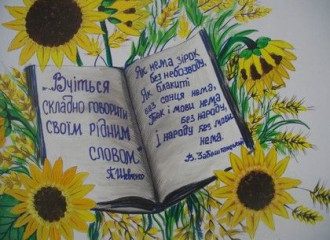 „Вчіться
складно говорити
своїм рідним
словом"
Т. Шевченко
Як нема зірок
без небозводу,
Як блакиті
без сонця нема,
Так і мови нема
без народу,
І народу без мови
нема.
В. Забаштанський